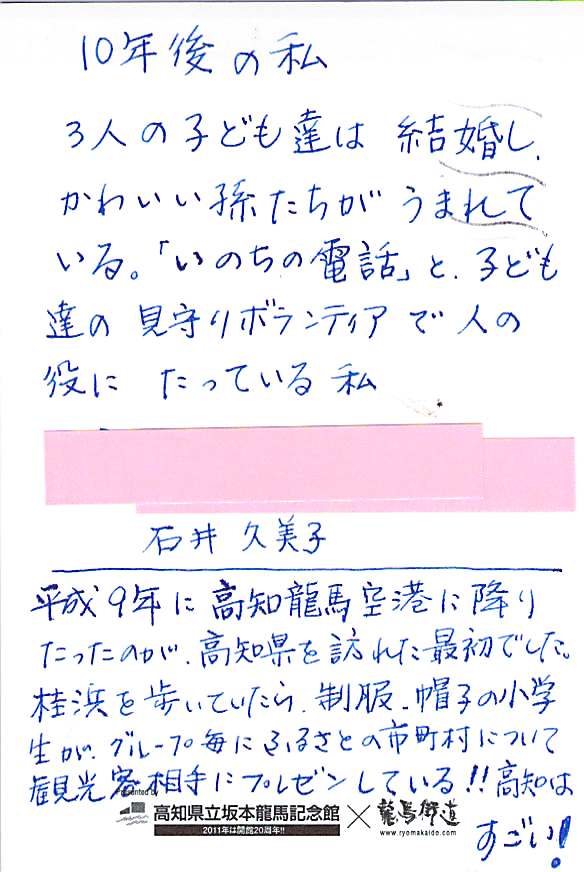 10年後の私
3人の子ども達は 結婚し、
かわいい孫たちが うまれて
いる。「いのちの電話」と、子ども
達の 見守りボランティア で 人の
役に たっている 私
石井 久美子
平成9年に高知龍馬空港に降り
たったのが、高知県を訪れた最初でした。
桂浜を歩いていたら、制服、帽子の小学
生が、グループ毎にふるさとの市町村について
観光客相手にプレゼンしている!!高知は
すごい!
presented by
高知県立坂本龍馬記念館 × 龍馬街道
2011年は開館20周年!!
www.ryomakaido.com